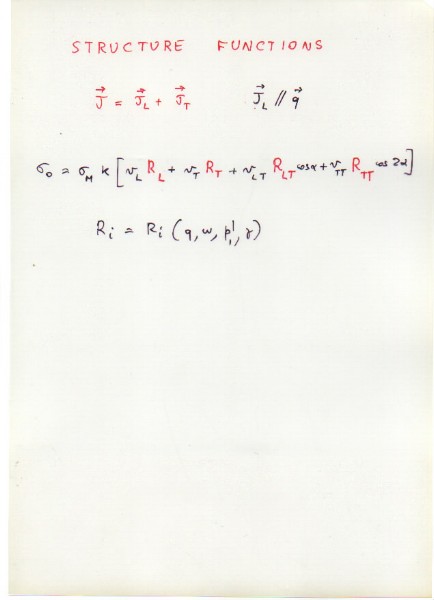 STRUCTURE FUNCTIONS
J⃗ = J⃗_L + J⃗_T J⃗_L // q⃗
σ_0 = σ_M K [ v_L R_L + v_T R_T + v_LT R_LT cos α + v_TT R_TT cos 2α ]
R_i = R_i ( q, ω, p'_1, γ )